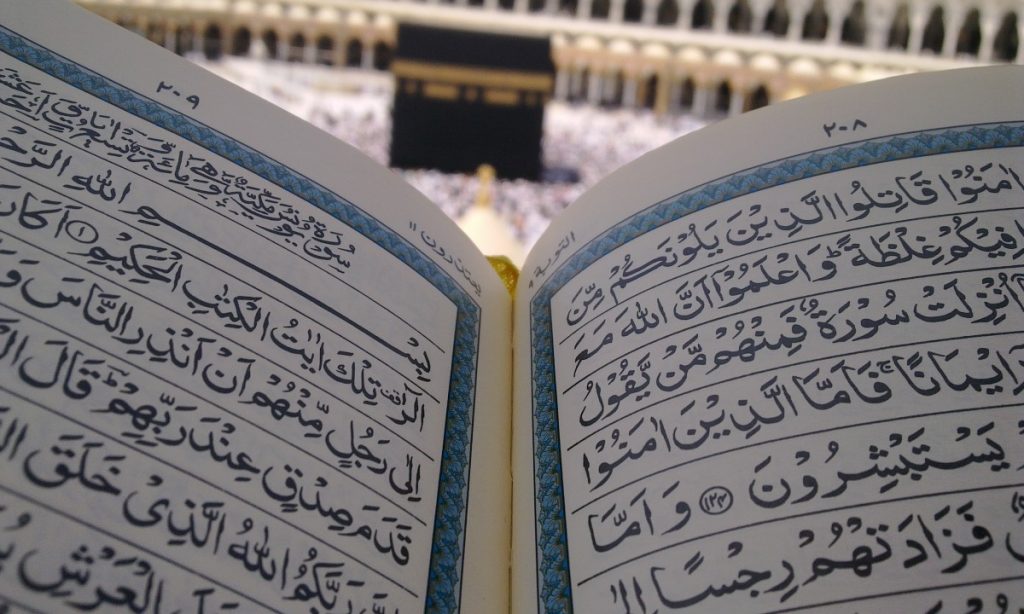 ٢٠٨
التوبة ٩
اٰمَنُوْا قَاتِلُوا الَّذِيْنَ يَلُوْنَكُمْ مِّنَ
فِيْكُمْ غِلْظَةً ؕ وَاعْلَمُوْۤا اَنَّ اللّٰهَ مَعَ
اُنْزِلَتْ سُوْرَةٌ فَمِنْهُمْ مَّنْ يَّقُوْلُ
اِيْمَانًا ۚ فَاَمَّا الَّذِيْنَ اٰمَنُوْا
يَسْتَبْشِرُوْنَ ﴿١٢٤﴾ وَاَمَّا
فَزَادَتْهُمْ رِجْسًا اِلٰى
٢٠٩
يعتذرون ١١
سُوْرَةُ يُوْنُسَ مَكِّيَّةٌ وَّهِيَ
بِسْمِ اللّٰهِ
الٓرٰ تِلْكَ اٰيٰتُ الْكِتٰبِ الْحَكِيْمِ ﴿١﴾ اَكَانَ
اِلٰى رَجُلٍ مِّنْهُمْ اَنْ اَنْذِرِ النَّاسَ وَ
قَدَمَ صِدْقٍ عِنْدَ رَبِّهِمْ ؕ قَالَ
رَبَّكُمُ اللّٰهُ الَّذِيْ خَلَقَ
الْعَرْشِ